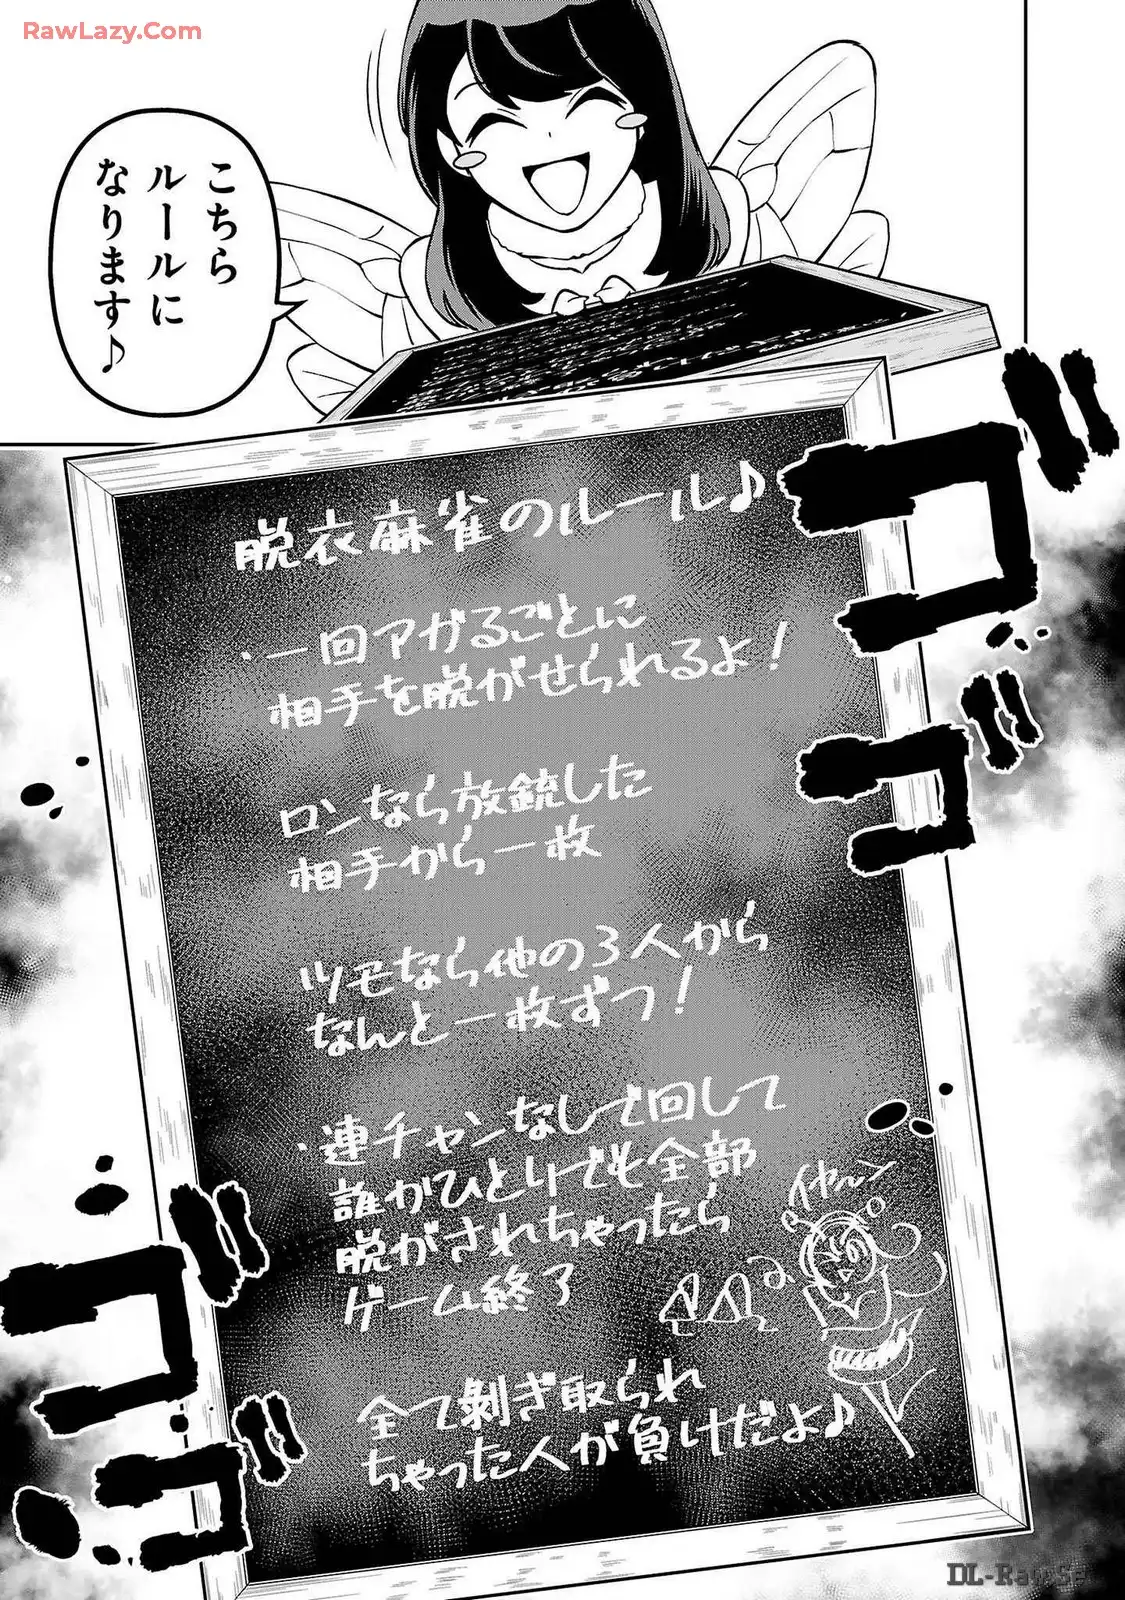 RawLazy.Com
こちら
ルールに
なります♪
脱衣麻雀のルール♪
・一回アガるごとに
相手を脱がせられるよ！
ロンなら放銃した
相手から一枚
ツモなら他の3人から
なんと一枚ずつ！
・連チャンなしで回して
誰かひとりでも全部
脱がされちゃったら
ゲーム終了
イヤ〜ン
全て剥ぎ取られ
ちゃった人が負けだよ♪
ゴゴ
ゴゴ